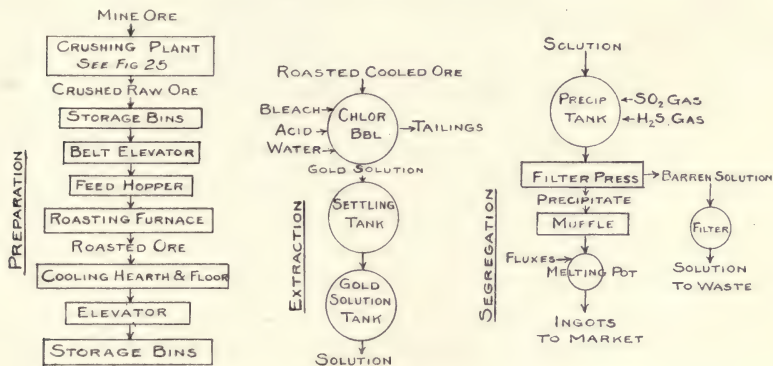 PREPARATION
MINE ORE
CRUSHING PLANT
SEE FIG 25
CRUSHED RAW ORE
STORAGE BINS
BELT ELEVATOR
FEED HOPPER
ROASTING FURNACE
ROASTED ORE
COOLING HEARTH & FLOOR
ELEVATOR
STORAGE BINS
EXTRACTION
ROASTED COOLED ORE
BLEACH
ACID
WATER
CHLOR
BBL
TAILINGS
GOLD SOLUTION
SETTLING
TANK
GOLD
SOLUTION
TANK
SOLUTION
SEGREGATION
SOLUTION
PRECIP
TANK
SO2 GAS
H2S. GAS
FILTER PRESS
BARREN SOLUTION
PRECIPITATE
MUFFLE
FILTER
FLUXES
MELTING POT
SOLUTION
TO WASTE
INGOTS
TO MARKET